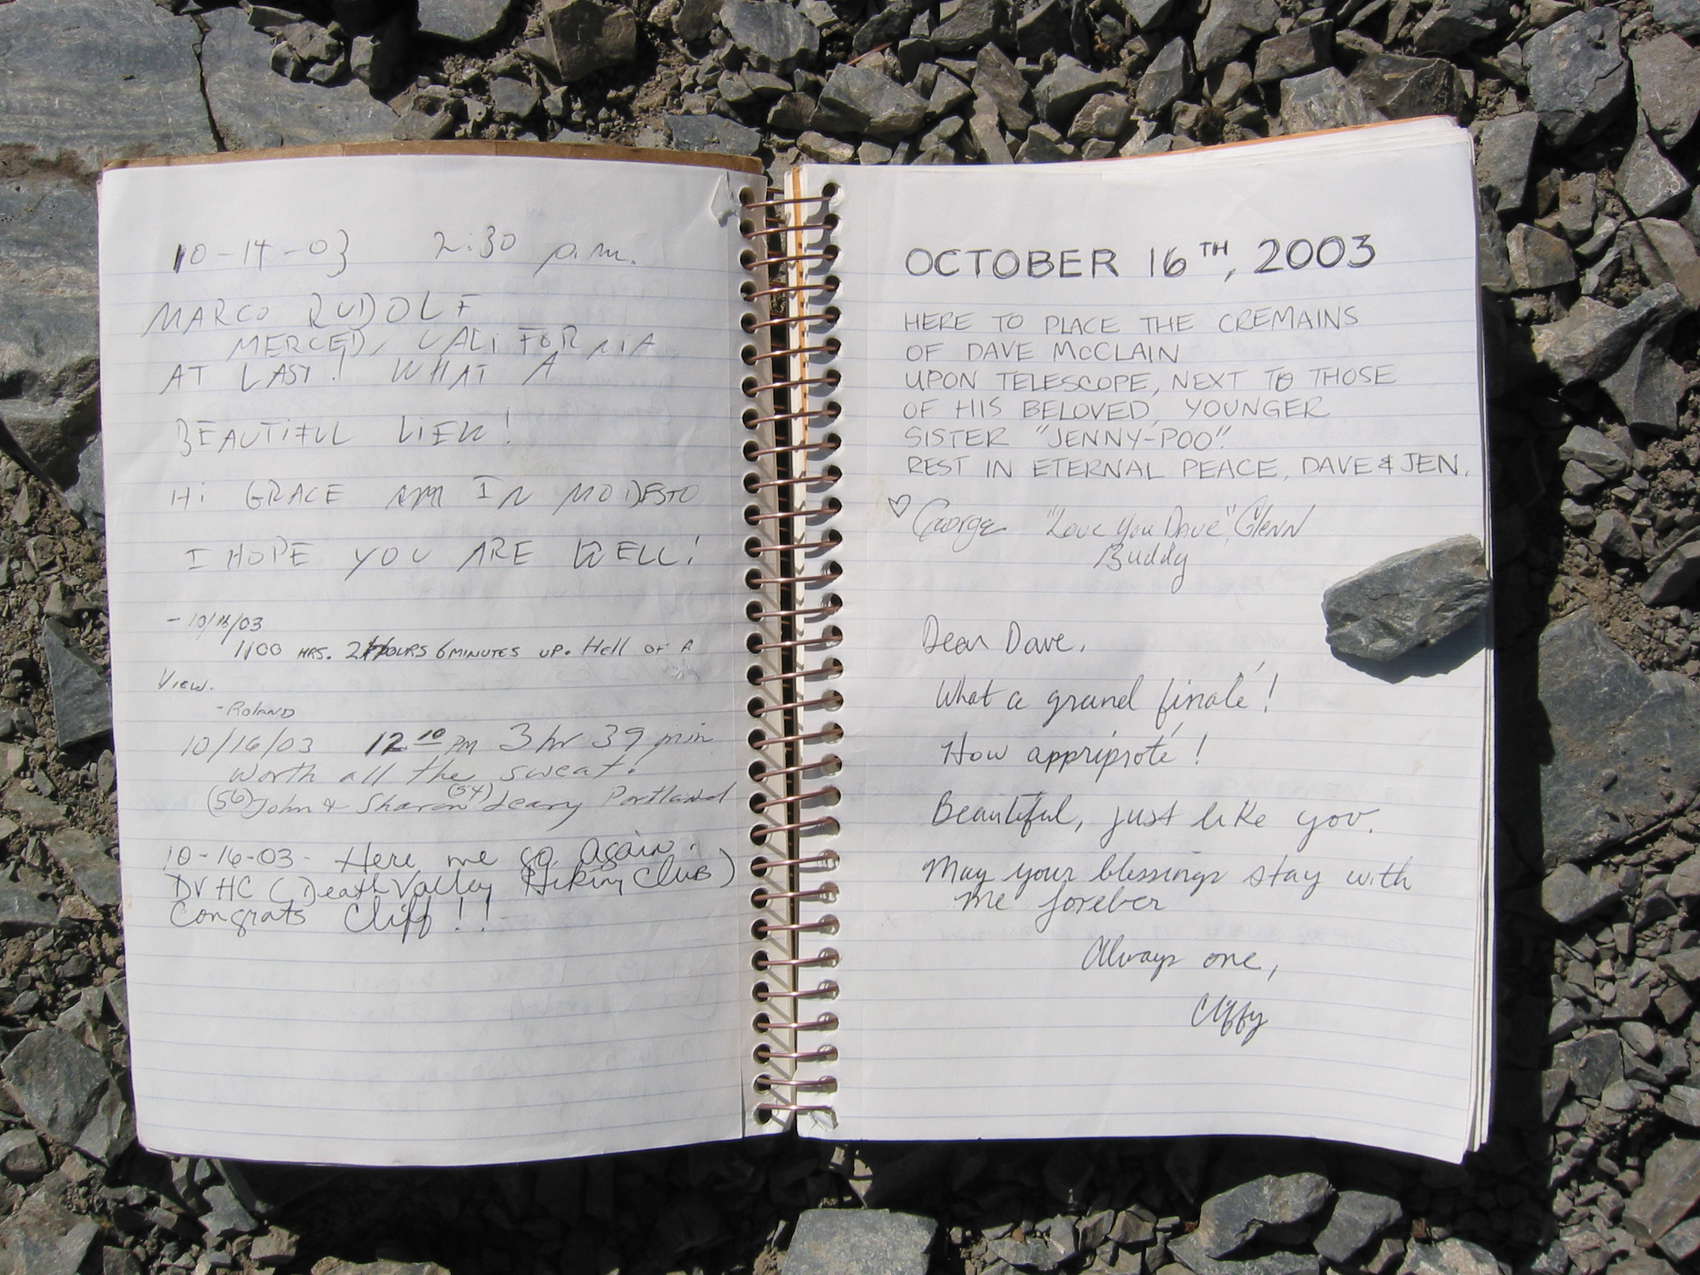 10-14-03 2:30 p.m.
MARCO RUDOLF
MERCED, CALIFORNIA
AT LAST! WHAT A
BEAUTIFUL VIEW!
Hi GRACE AM IN MODESTO
I HOPE YOU ARE WELL!
- 10/16/03
1100 HRS. 2 HOURS 6 MINUTES UP. Hell OF A
View.
- ROLAND
10/16/03 12 10 PM 3 hr 39 min
Worth all the sweat.
(56) John & Sharon (54) Leary Portland
10-16-03- Here me go again.
DVHC (Death Valley Hiking Club)
Congrats Cliff!!
OCTOBER 16TH, 2003
HERE TO PLACE THE CREMAINS
OF DAVE McCLAIN
UPON TELESCOPE, NEXT TO THOSE
OF HIS BELOVED, YOUNGER
SISTER "JENNY-POO".
REST IN ETERNAL PEACE, DAVE & JEN.
♡ George "Love You Dave", Glenn
Buddy
Dear Dave,
What a grand finalé!
How appriproté!
Beautiful, just like you.
May your blessings stay with
me forever
Always one,
Cliffy